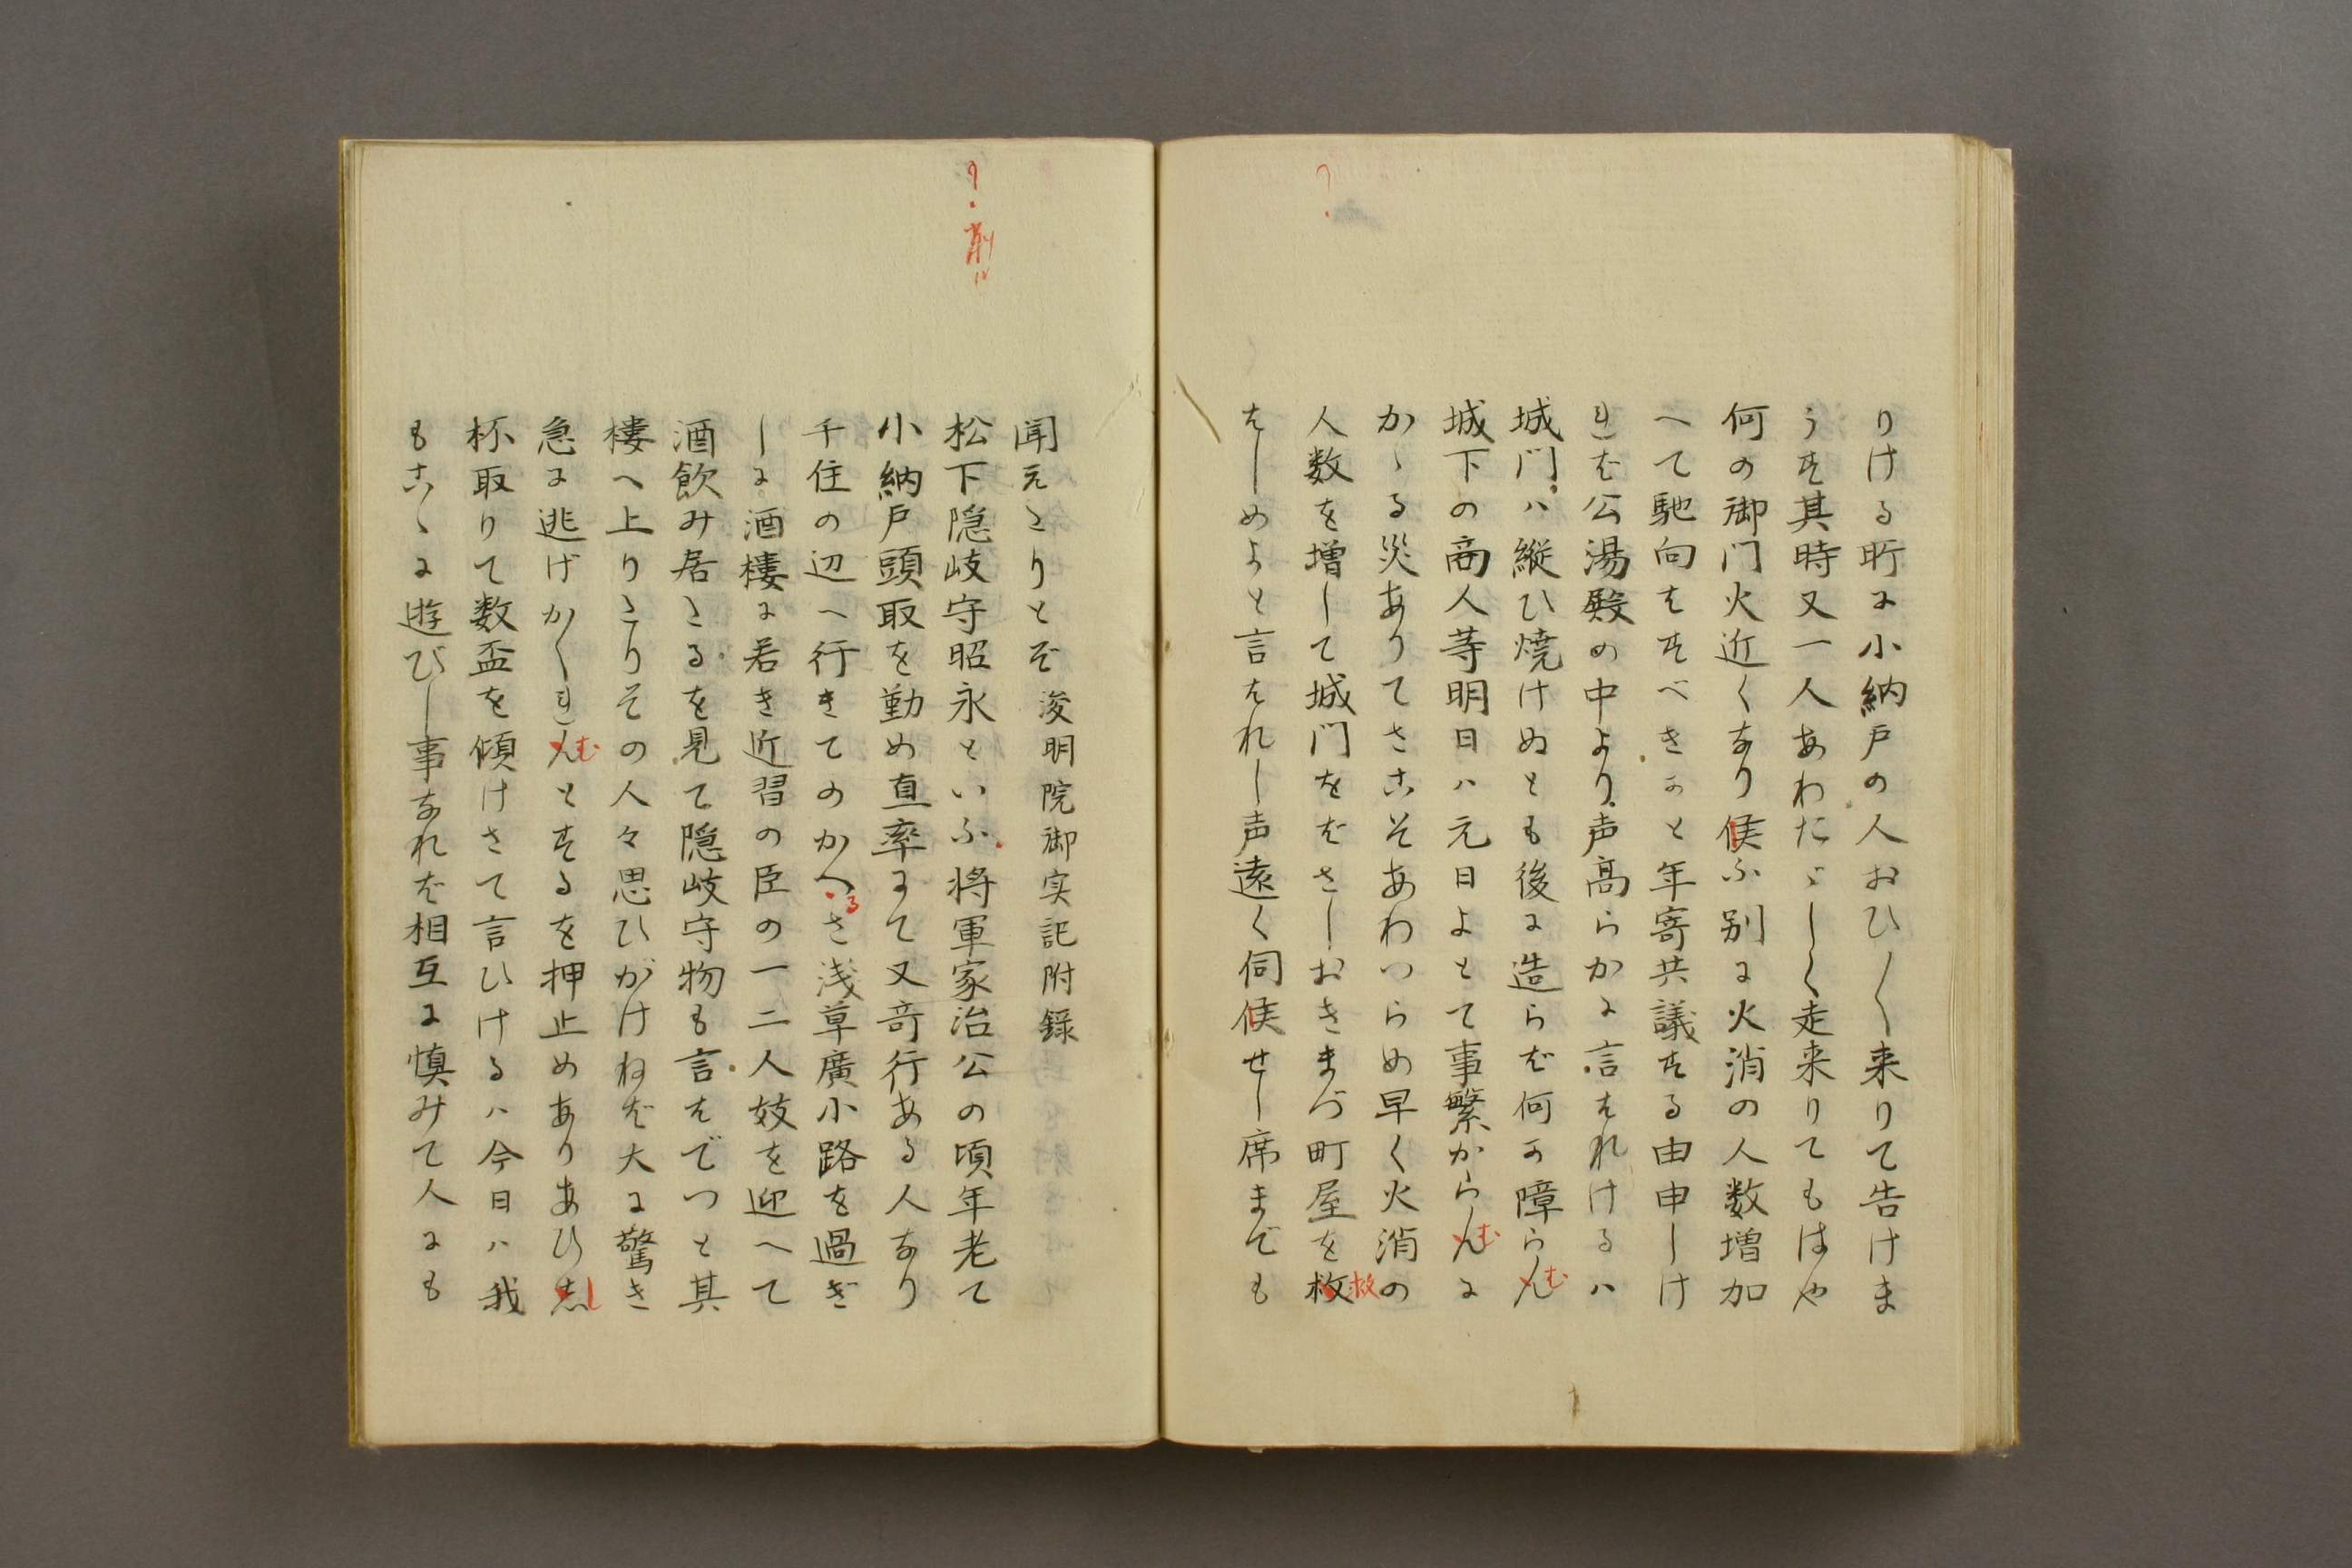 りける所に小納戸の人おひ〳〵来りて告けま
うす其時又一人あわたゞしく走来りてもはや
何の御門火近くなり候ふ別に火消の人数増加
へて馳向はすべきかと年寄共議する由申しけ
れば公湯殿の中より声高らかに言はれけるハ
城門ハ縦ひ焼けぬとも後に造らば何か障らんむ
城下の商人等明日ハ元日よとて事繁からんむに
かゝる災ありてさこそあわつらめ早く火消の
人数を増して城門をばさしおきまづ町屋を救救
はしめよと言はれし声遠く伺候せし席までも
?
聞えたりとぞ 浚明院御実記附録
?
松下隠岐守昭永といふ将軍家治公の頃年老て
小納戸頭取を勤め直率にて又奇行ある人なり
千住の辺へ行きてのかへるさ浅草廣小路を過ぎ
しに酒樓に若き近習の臣の一二人妓を迎へて
酒飲み居たるを見て隠岐守物も言はでつと其
樓へ上りたりその人々思ひがけねば大に驚き
急に逃げかくれんむとするを押止めありあひし
杯取りて数盃を傾けさて言ひけるハ今日ハ我
もこゝに遊びし事なれば相互に慎みて人にも